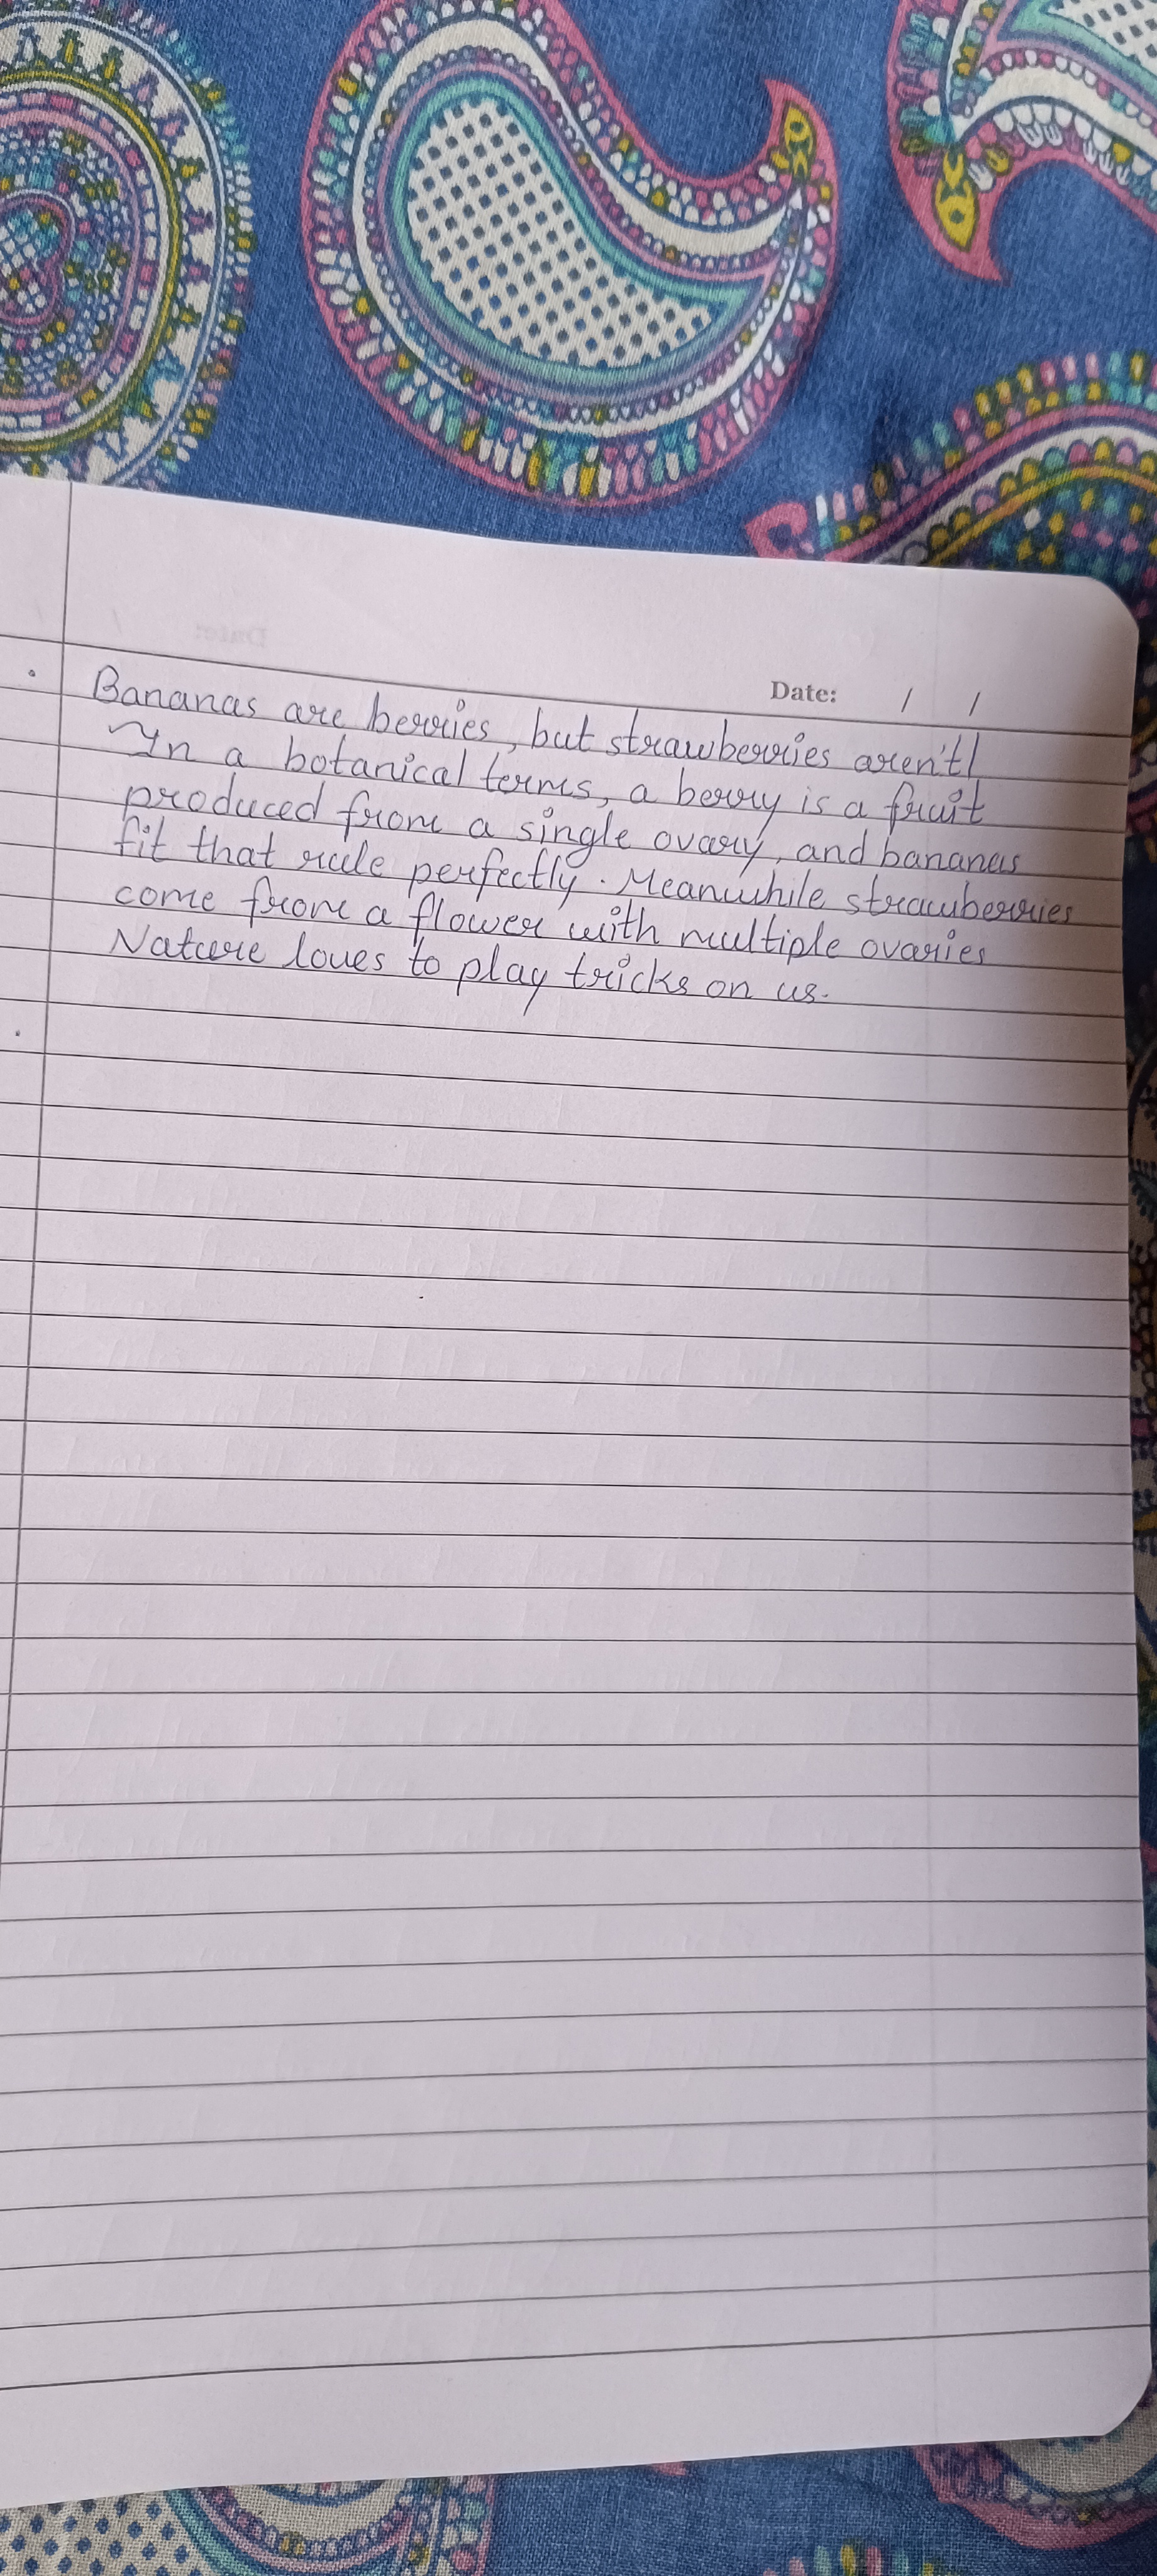 Date: / /
Bananas are berries, but strawberries aren't!
In a botanical terms, a berry is a fruit
produced from a single ovary, and bananas
fit that rule perfectly. Meanwhile strawberries
come from a flower with multiple ovaries
Nature loves to play tricks on us.